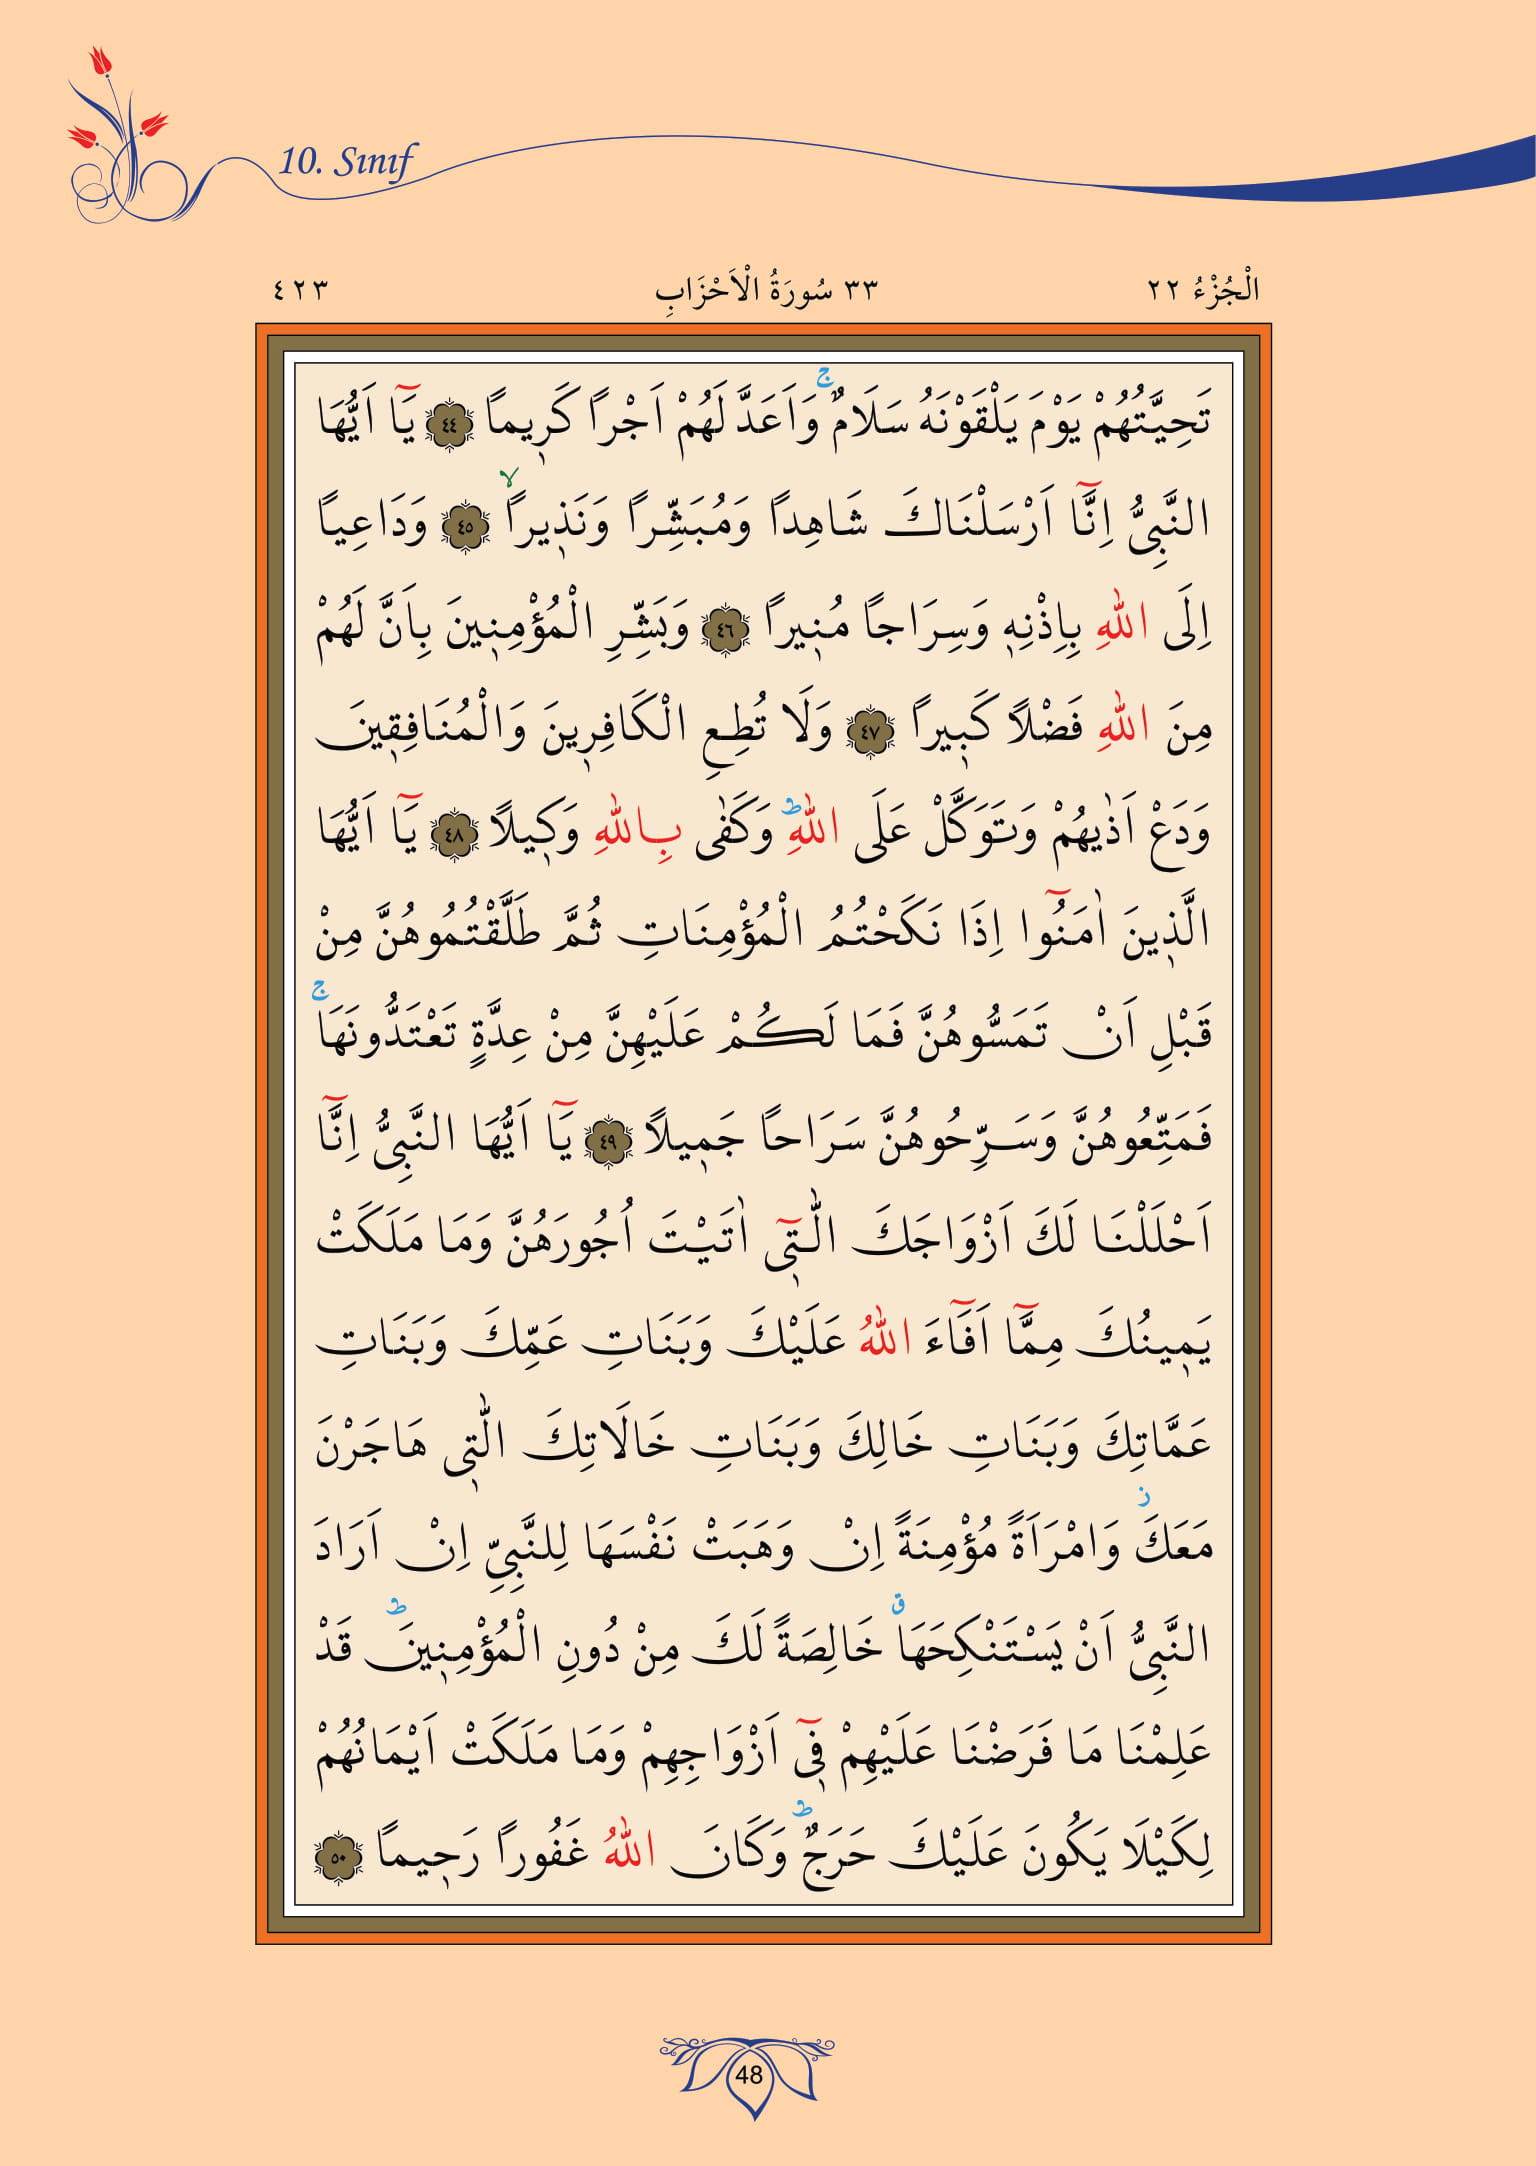 10. Sınıf
الْجُزْءُ ٢٢
٣٣ سُورَةُ الْاَحْزَابِ
٤٢٣
تَحِيَّتُهُمْ يَوْمَ يَلْقَوْنَهُ سَلَامٌۚ وَاَعَدَّ لَهُمْ اَجْرًا كَر۪يمًا ٤٤ يَٓا اَيُّهَا
النَّبِيُّ اِنَّٓا اَرْسَلْنَاكَ شَاهِدًا وَمُبَشِّرًا وَنَذ۪يرًاۙ ٤٥ وَدَاعِيًا
اِلَى اللّٰهِ بِاِذْنِه۪ وَسِرَاجًا مُن۪يرًا ٤٦ وَبَشِّرِ الْمُؤْمِن۪ينَ بِاَنَّ لَهُمْ
مِنَ اللّٰهِ فَضْلًا كَب۪يرًا ٤٧ وَلَا تُطِعِ الْكَافِر۪ينَ وَالْمُنَافِق۪ينَ
وَدَعْ اَذٰيهُمْ وَتَوَكَّلْ عَلَى اللّٰهِۜ وَكَفٰى بِاللّٰهِ وَك۪يلًا ٤٨ يَٓا اَيُّهَا
الَّذ۪ينَ اٰمَنُٓوا اِذَا نَكَحْتُمُ الْمُؤْمِنَاتِ ثُمَّ طَلَّقْتُمُوهُنَّ مِنْ
قَبْلِ اَنْ تَمَسُّوهُنَّ فَمَا لَكُمْ عَلَيْهِنَّ مِنْ عِدَّةٍ تَعْتَدُّونَهَاۚ
فَمَتِّعُوهُنَّ وَسَرِّحُوهُنَّ سَرَاحًا جَم۪يلًا ٤٩ يَٓا اَيُّهَا النَّبِيُّ اِنَّٓا
اَحْلَلْنَا لَكَ اَزْوَاجَكَ الّٰت۪ٓي اٰتَيْتَ اُجُورَهُنَّ وَمَا مَلَكَتْ
يَم۪ينُكَ مِمَّٓا اَفَٓاءَ اللّٰهُ عَلَيْكَ وَبَنَاتِ عَمِّكَ وَبَنَاتِ
عَمَّاتِكَ وَبَنَاتِ خَالِكَ وَبَنَاتِ خَالَاتِكَ الّٰت۪ي هَاجَرْنَ
مَعَكَۘ وَامْرَاَةً مُؤْمِنَةً اِنْ وَهَبَتْ نَفْسَهَا لِلنَّبِيِّ اِنْ اَرَادَ
النَّبِيُّ اَنْ يَسْتَنْكِحَهَاۗ خَالِصَةً لَكَ مِنْ دُونِ الْمُؤْمِن۪ينَۜ قَدْ
عَلِمْنَا مَا فَرَضْنَا عَلَيْهِمْ ف۪ٓي اَزْوَاجِهِمْ وَمَا مَلَكَتْ اَيْمَانُهُمْ
لِكَيْلَا يَكُونَ عَلَيْكَ حَرَجٌۜ وَكَانَ اللّٰهُ غَفُورًا رَح۪يمًا ٥٠
48